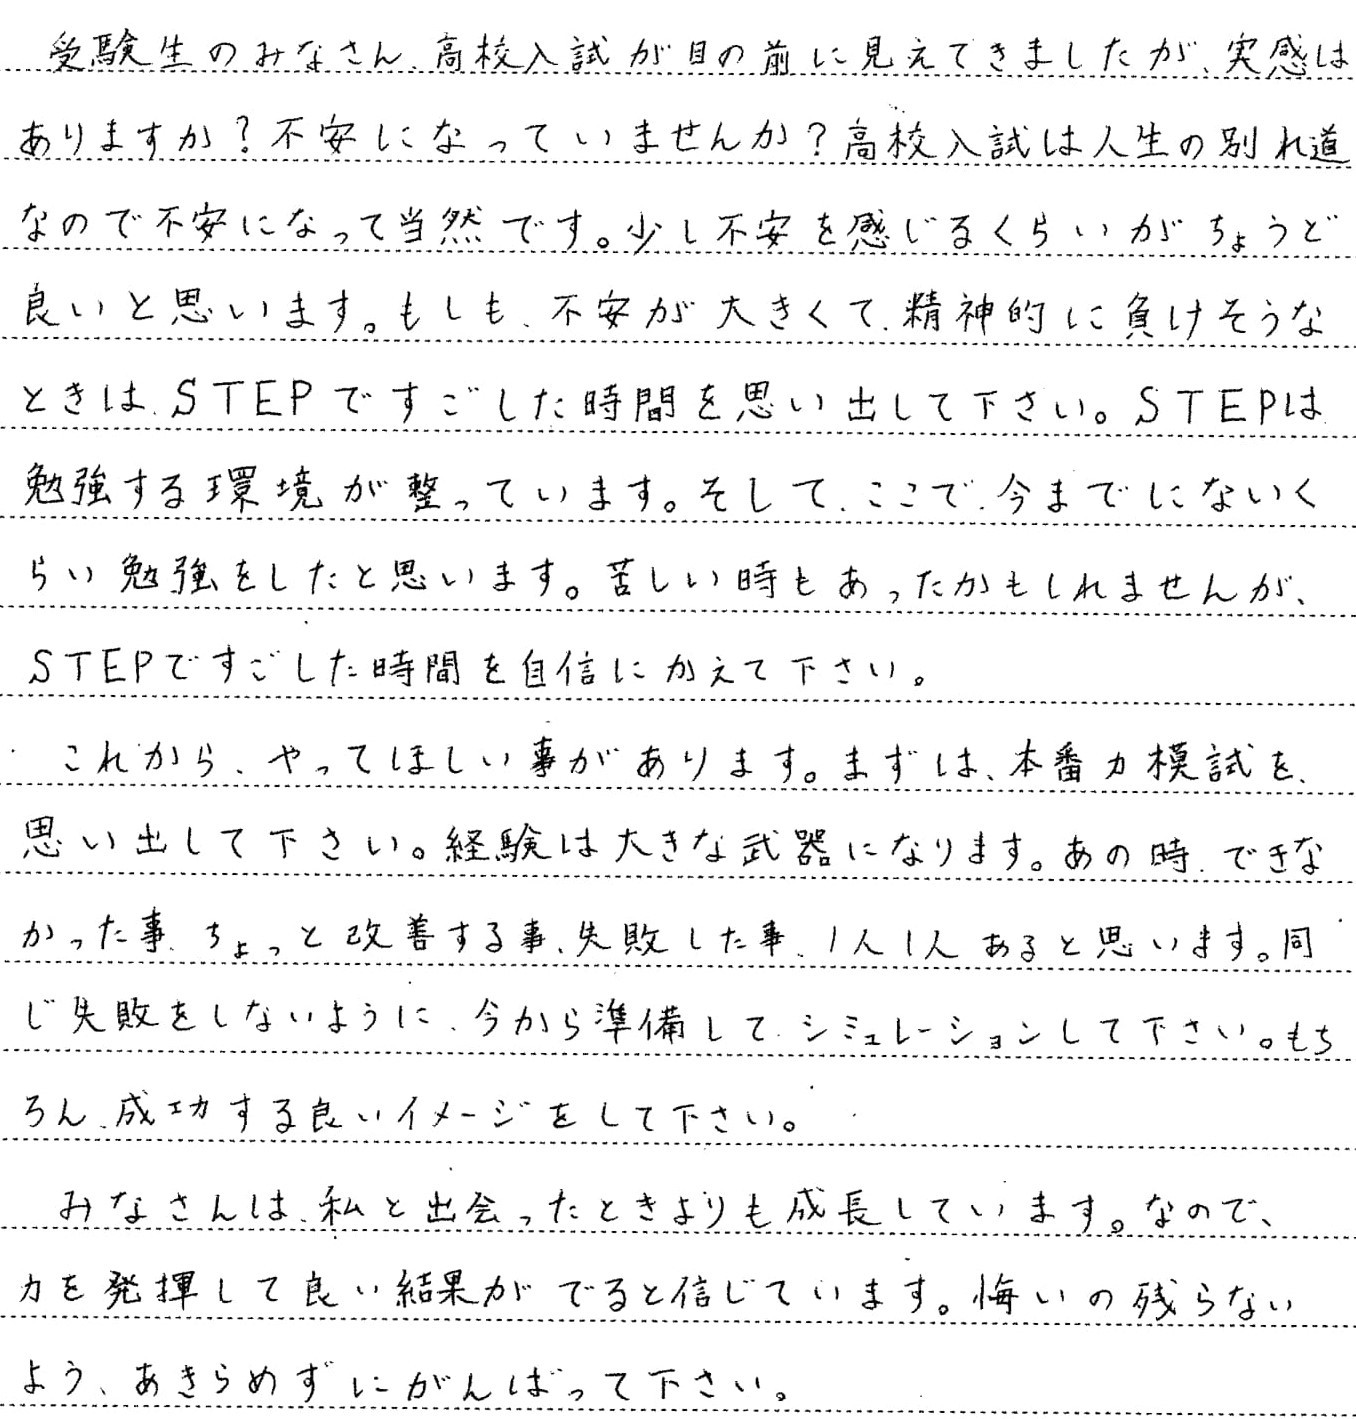 受験生のみなさん、高校入試が目の前に見えてきましたが、実感は
ありますか?不安になっていませんか?高校入試は人生の別れ道
なので不安になって当然です。少し不安を感じるくらいがちょうど
良いと思います。もしも、不安が大きくて、精神的に負けそうな
ときは、STEPですごした時間を思い出して下さい。STEPは
勉強する環境が整っています。そして、ここで、今までにないく
らい勉強をしたと思います。苦しい時もあったかもしれませんが、
STEPですごした時間を自信にかえて下さい。
これから、やってほしい事があります。まずは、本番力模試を、
思い出して下さい。経験は大きな武器になります。あの時、できな
かった事、ちょっと改善する事、失敗した事、1人1人あると思います。同
じ失敗をしないように、今から準備して、シミュレーションして下さい。もち
ろん、成功する良いイメージをして下さい。
みなさんは、私と出会ったときよりも成長しています。なので、
力を発揮して良い結果がでると信じています。悔いの残らない
よう、あきらめずにがんばって下さい。